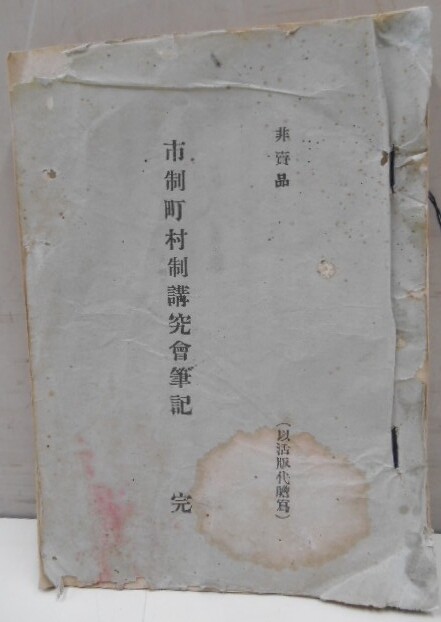 非賣品
(以活版代謄寫)
市制町村制講究會筆記 完